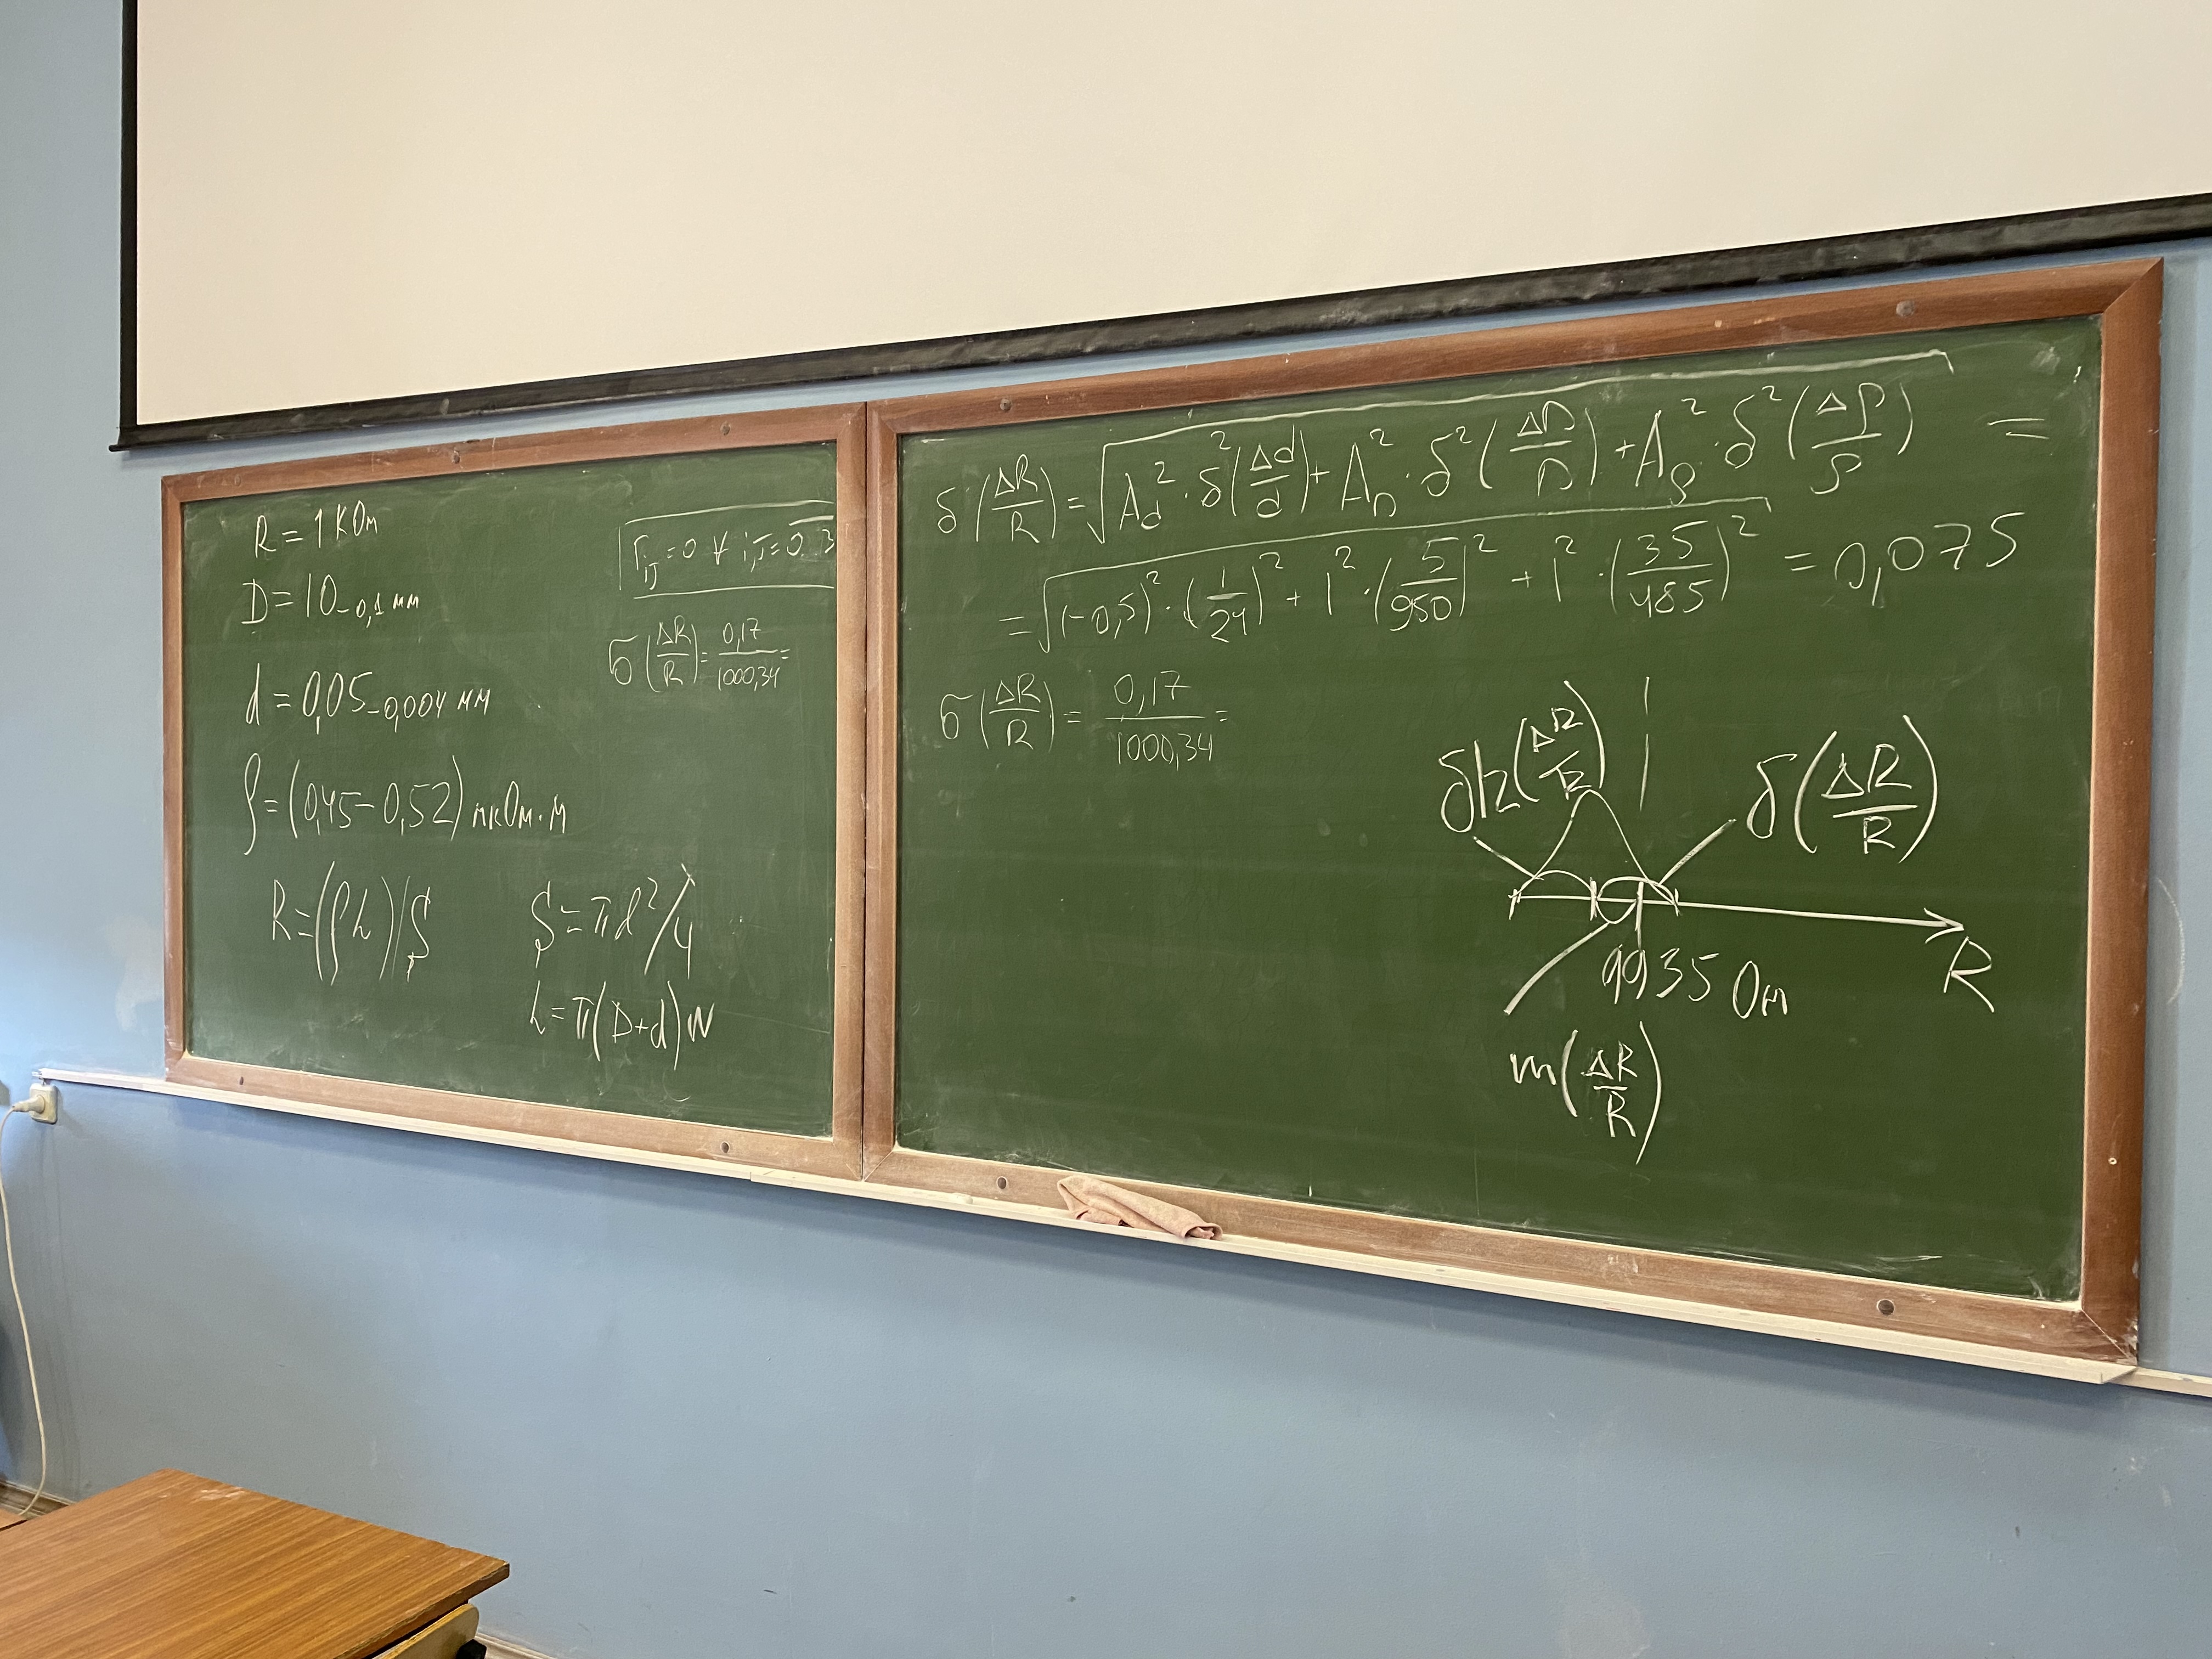 R = 1 кОм
D = 10₋₀,₁ мм
d = 0,05₋₀,₀₀₄ мм
ρ = (0,45 – 0,52) мкОм·м
R = (ρL)/S
S = πd²/4
L = π(D+d)W
r_ij = 0 ∀ i,j = 0..3
σ(ΔR/R) = 0,17/1000,34 =
δ(ΔR/R) = √(A_d²·δ²(Δd/d) + A_D²·δ²(ΔD/D) + A_ρ²·δ²(Δρ/ρ)) =
= √((-0,5)²·(1/24)² + 1²·(5/950)² + 1²·(35/485)²) = 0,075
σ(ΔR/R) = 0,17/1000,34 =
δ(ΔR/R)
9935 Ом
R
m(ΔR/R)